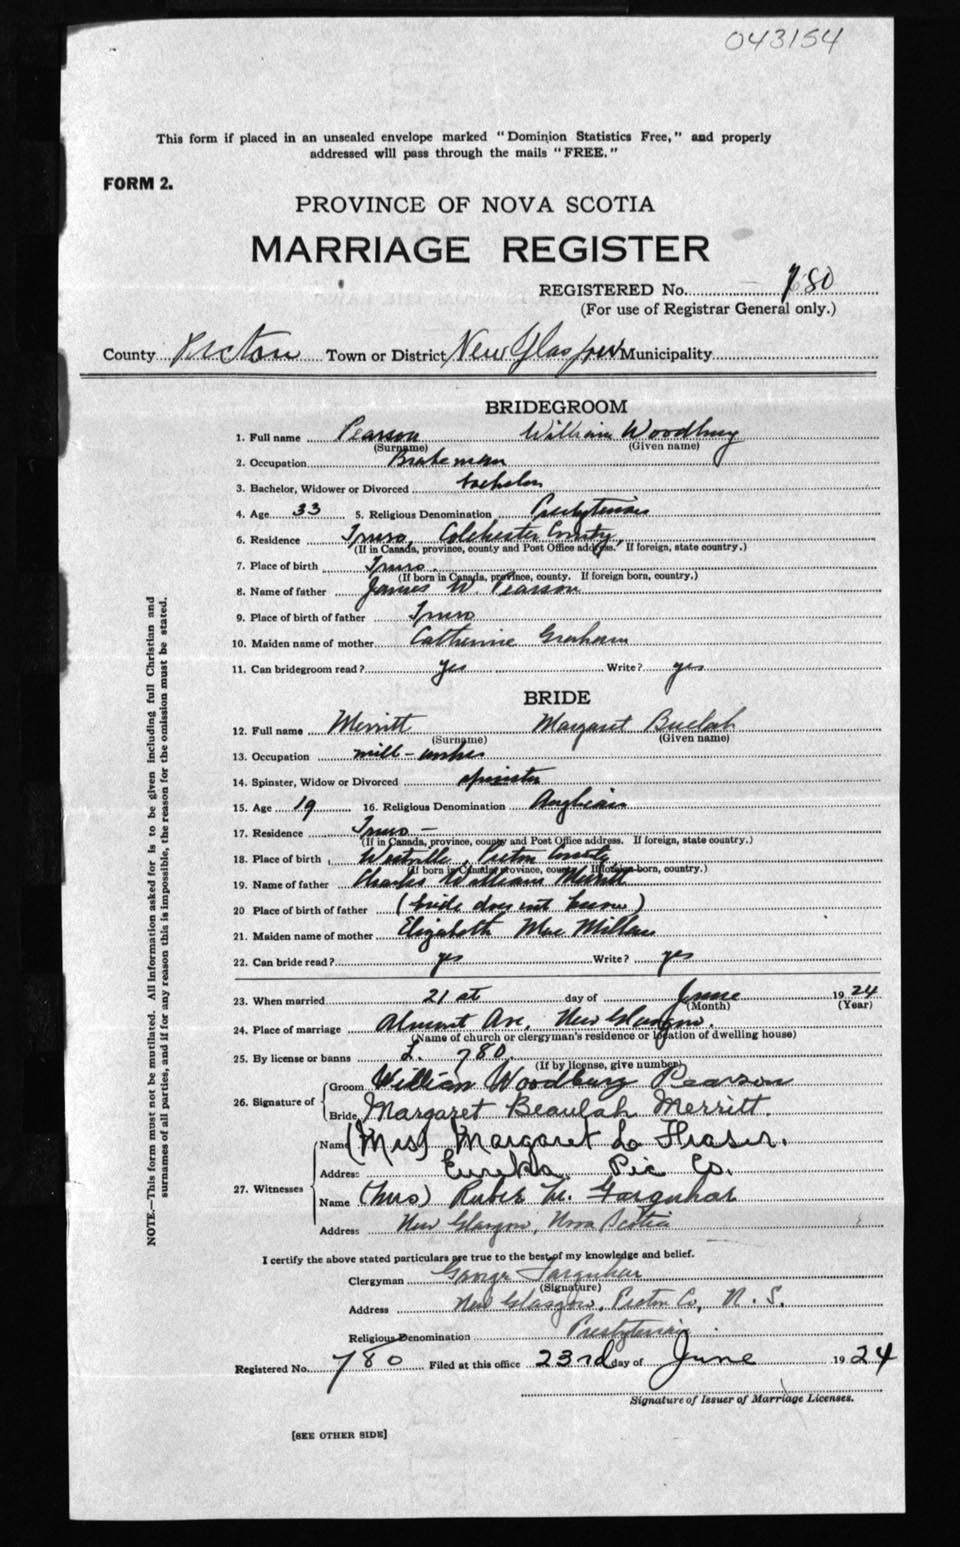 043154
This form if placed in an unsealed envelope marked "Dominion Statistics Free," and properly
addressed will pass through the mails "FREE."
FORM 2.
PROVINCE OF NOVA SCOTIA
MARRIAGE REGISTER
REGISTERED No. 780
(For use of Registrar General only.)
County Pictou Town or District New Glasgow Municipality
BRIDEGROOM
1. Full name Pearson William Woodbury
(Surname) (Given name)
2. Occupation Brakeman
3. Bachelor, Widower or Divorced bachelor
4. Age 33 5. Religious Denomination Presbyterian
6. Residence Truro, Colchester County,
(If in Canada, province, county and Post Office address. If foreign, state country.)
7. Place of birth Truro.
(If born in Canada, province, county. If foreign born, country.)
8. Name of father James W. Pearson
9. Place of birth of father Truro
10. Maiden name of mother Catherine Graham
11. Can bridegroom read? yes Write? yes
BRIDE
12. Full name Merritt Margaret Buelah
(Surname) (Given name)
13. Occupation mill-worker
14. Spinster, Widow or Divorced spinster
15. Age 19 16. Religious Denomination Anglican
17. Residence Truro -
(If in Canada, province, county and Post Office address. If foreign, state country.)
18. Place of birth Westville, Pictou County
(If born in Canada, province, county. If foreign born, country.)
19. Name of father Charles William Merritt
20 Place of birth of father (bride does not know)
21. Maiden name of mother Elizabeth MacMillan
22. Can bride read? yes Write? yes
23. When married 21st day of June 1924
(Month) (Year)
24. Place of marriage Almont Ave, New Glasgow.
(Name of church or clergyman's residence or location of dwelling house)
25. By license or banns L. 780
(If by license, give number)
26. Signature of Groom William Woodburg Pearson
Bride Margaret Beaulah Merritt.
27. Witnesses Name (Mrs) Margaret L. Fraser.
Address Eureka Pic Co.
Name (Mrs) Ruber M. Farquhar
Address New Glasgow, Nova Scotia
I certify the above stated particulars are true to the best of my knowledge and belief.
Clergyman George Farquhar
(Signature)
Address New Glasgow, Pictou Co, N. S.
Religious Denomination Presbyterian
Registered No. 780 Filed at this office 23rd day of June 1924
Signature of Issuer of Marriage Licenses.
[SEE OTHER SIDE]
NOTE.—This form must not be mutilated. All information asked for is to be given including full Christian and
surnames of all parties, and if for any reason this is impossible, the reason for the omission must be stated.